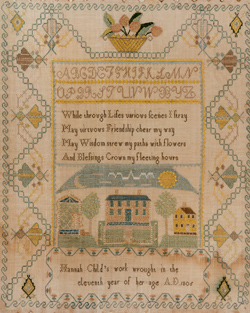 ABCDEFGHIJKLMN
OPQRSTUVWXYZ
While through Lifes various scenes I stray
May virtuous Friendship chear my way
May Wisdom strew my paths with flowers
And Blessings Crown my fleeting hours
Hannah Child's work wrought in the
eleventh year of her age A.D.